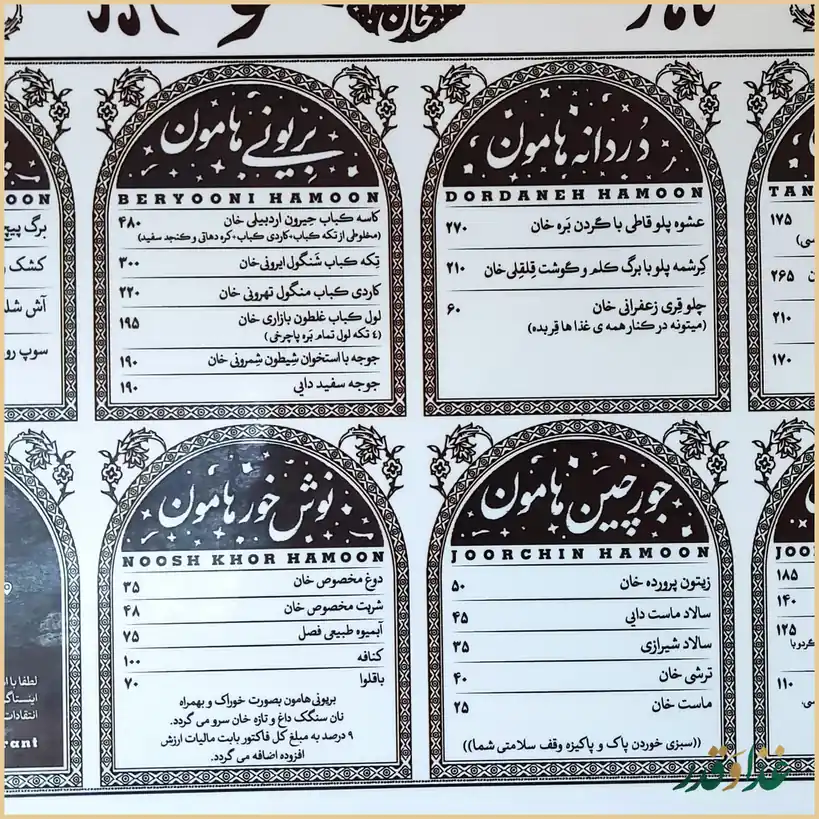 خان
دُردانه هامون
DORDANEH HAMOON
عشوه پلو قاطی با گردن بَره خان ۲۷۰
کِرشمه پلو با برگ کلم و گوشت قِلقِلی خان ۲۱۰
چلو قِری زعفرانی خان ۶۰
(میتونه در کنار همه ی غذا ها قِر بده)
بِریونی هامون
BERYOONI HAMOON
کاسه کباب جیرون اردبیلی خان ۴۸۰
(مخلوطی از تکه کباب+کاردی کباب+کره دهاتی و کنجد سفید)
تِکه کباب شَنگول ایرونی خان ۳۰۰
کاردی کباب منگول تهرونی خان ۲۲۰
لول کباب غلطون بازاری خان ۱۹۵
(۴ تکه لول تمام بَره پاچرخی)
جوجه با استخوان شِیطون شِمرونی خان ۱۹۰
جوجه سفید دایی ۱۹۰
۱۷۵
۲۶۵
۲۱۰
۱۷۰
برگ پیچ
کشک
آش شله
سوپ
جورچین هامون
JOORCHIN HAMOON
زیتون پرورده خان ۵۰
سالاد ماست دایی ۴۵
سالاد شیرازی ۳۵
ترشی خان ۴۰
ماست خان ۲۵
((سبزی خوردن پاک و پاکیزه وقف سلامتی شما))
نوش خور هامون
NOOSH KHOR HAMOON
دوغ مخصوص خان ۳۵
شربت مخصوص خان ۴۸
آبمیوه طبیعی فصل ۷۵
کنافه ۱۰۰
باقلوا ۷۰
بریونی هامون بصورت خوراک و بهمراه
نان سنگک داغ و تازه خان سرو می گردد.
۹ درصد به مبلغ کل فاکتور بابت مالیات ارزش
افزوده اضافه می گردد.
۱۸۵
۱۴۰
۱۲۵
۱۱۰
لطفا با
انتقادات
غذا و قدر